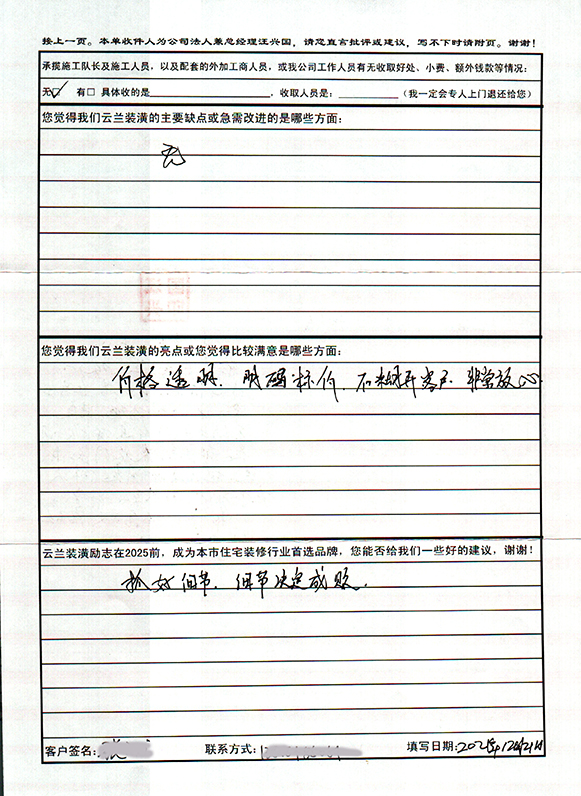 接上一页。本单收件人为公司法人兼总经理汪兴国，请您直言批评或建议，写不下时请附页。谢谢！
承揽施工队长及施工人员，以及配套的外加工商人员，或我公司工作人员有无收取好处、小费、额外钱款等情况：
无☑ 有□ 具体收的是 ，收取人员是： （我一定会专人上门退还给您）
您觉得我们云兰装潢的主要缺点或急需改进的是哪些方面：
无
您觉得我们云兰装潢的亮点或您觉得比较满意是哪些方面：
价格透明．明码标价．不 客户．非常放心．
云兰装潢励志在2025前，成为本市住宅装修行业首选品牌，您能否给我们一些好的建议，谢谢！
抓好细节．细节决定成败．
客户签名： 联系方式： 填写日期：